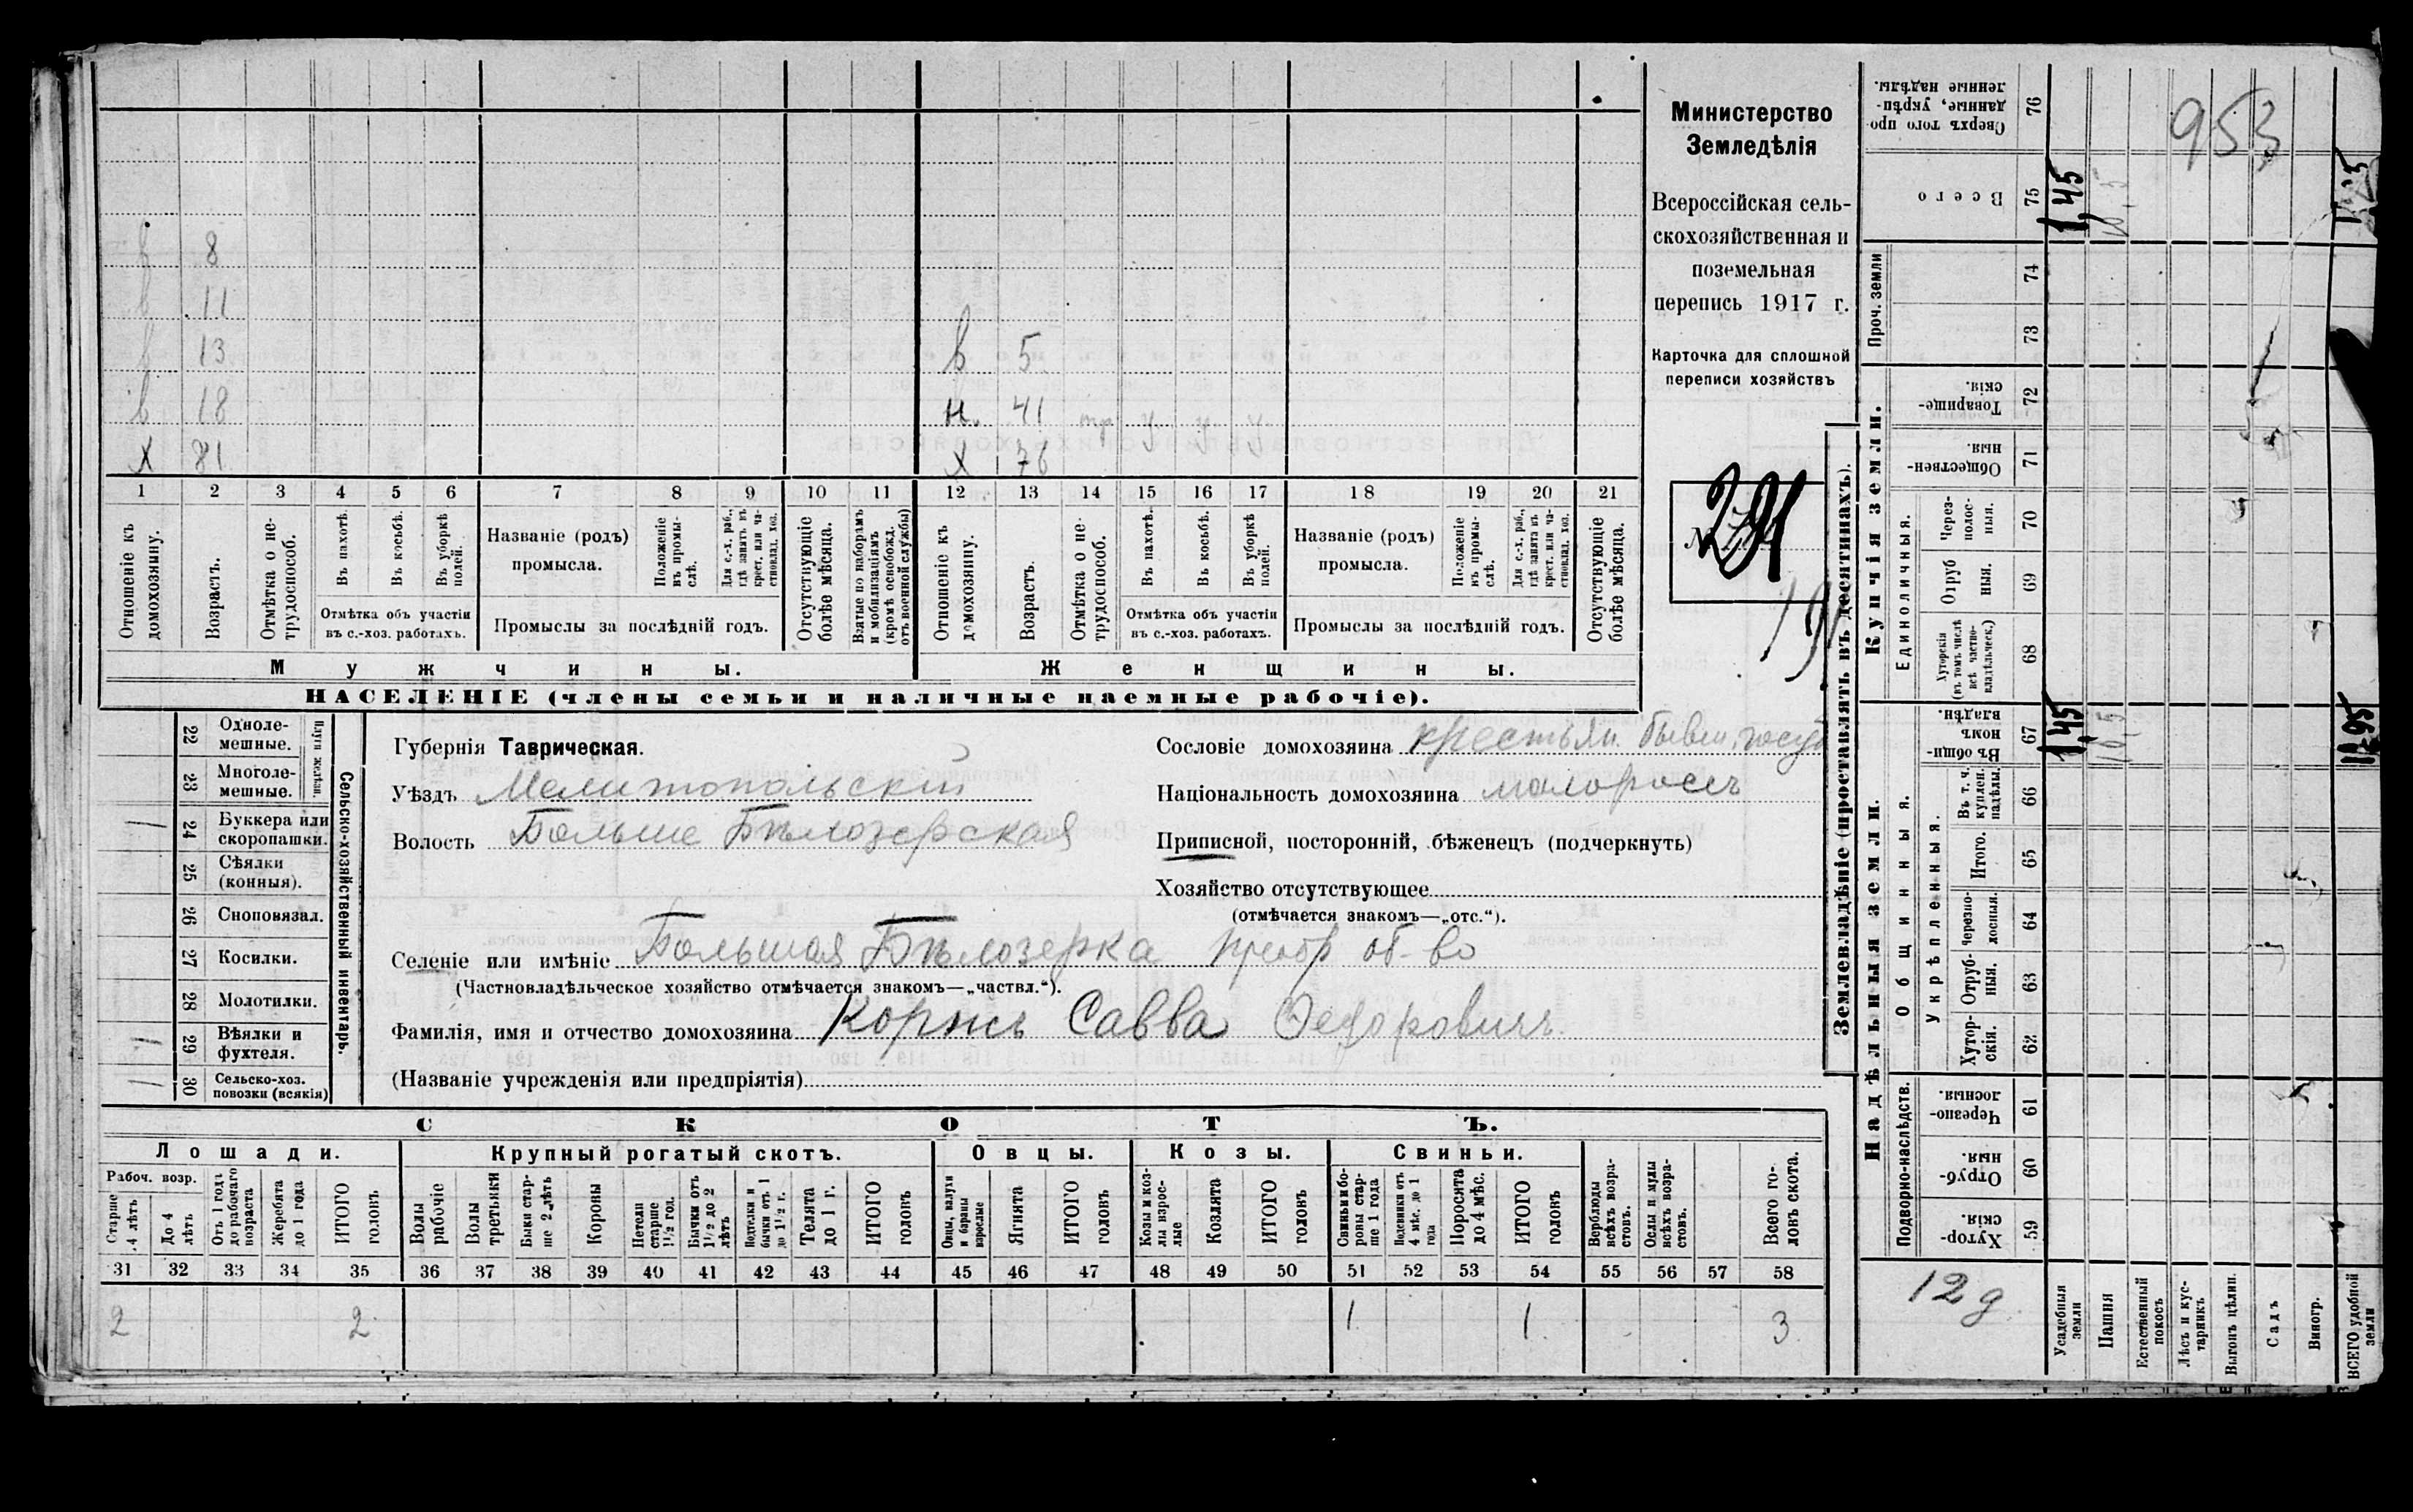 Министерство
Земледѣлія
Всероссійская сель-
скохозяйственная и
поземельная
перепись 1917 г.
Карточка для сплошной
переписи хозяйствъ
№
291
191
953
в 8
в 11
в 13 в 5
в 18 н. 41 тр. ч. ч. ч.
х 81 х 76
1 2 3 4 5 6 7 8 9 10 11 12 13 14 15 16 17 18 19 20 21
Отношеніе къ домохозяину.
Возрастъ.
Отмѣтка о не-трудоспособ.
Въ пахотѣ.
Въ косьбѣ.
Въ уборкѣ полей.
Отмѣтка объ участіи въ с.-хоз. работахъ.
Названіе (родъ) промысла.
Положеніе въ промы-слѣ.
Для с.-х. раб., гдѣ занятъ въ крест. или ча-стновлад. хоз.
Промыслы за послѣдній годъ.
Отсутствующіе болѣе мѣсяца.
Взятые по наборамъ и мобилизаціямъ (кромѣ освобожд. отъ военной службы)
Отношеніе къ домохозяину.
Возрастъ.
Отмѣтка о не-трудоспособ.
Въ пахотѣ.
Въ косьбѣ.
Въ уборкѣ полей.
Отмѣтка объ участіи въ с.-хоз. работахъ.
Названіе (родъ) промысла.
Положеніе въ промы-слѣ.
Для с.-х. раб., гдѣ занята въ крест. или ча-стновлад. хоз.
Промыслы за послѣдній годъ.
Отсутствующіе болѣе мѣсяца.
Мужчины. Женщины.
НАСЕЛЕНІЕ (члены семьи и наличные наемные рабочіе).
Сельско-хозяйственный инвентарь.
Плуги желѣзн.
22 Одноле-мешные.
23 Многоле-мешные.
1 24 Буккера или скоропашки.
25 Сѣялки (конныя).
26 Сноповязал.
27 Косилки.
28 Молотилки.
1 29 Вѣялки и фухтеля.
1 30 Сельско-хоз. повозки (всякія)
Губернія Таврическая.
Уѣздъ Мелитопольскій
Волость Больше Бѣлозерская
Сословіе домохозяина крестьян. бывш. госуд
Національность домохозяина малороссъ
Приписной, посторонній, бѣженецъ (подчеркнуть)
Хозяйство отсутствующее
(отмѣчается знакомъ—„отс.“).
Селеніе или имѣніе Большая Бѣлозерка преобр об-во
(Частновладѣльческое хозяйство отмѣчается знакомъ—„частвл.“).
Фамилія, имя и отчество домохозяина Коржъ Савва Федоровичъ
(Названіе учрежденія или предпріятія)
СКОТЪ.
Лошади. Крупный рогатый скотъ. Овцы. Козы. Свиньи.
Рабоч. возр.
Старше 4 лѣтъ
До 4 лѣтъ
Отъ 1 годъ до рабочаго возраста
Жеребята до 1 года
ИТОГО головъ
Волы рабочіе
Волы третьяки
Быки стар-ше 2 лѣтъ
Коровы
Нетели старше 1½ год.
Бычки отъ 1½ до 2 лѣтъ
Подтелки и бычки отъ 1 до 1½ г.
Телята до 1 г.
ИТОГО головъ
Овцы, валухи и бараны взрослые
Ягнята
ИТОГО головъ
Козы и коз-лы взрос-лые
Козлята
ИТОГО головъ
Свиньи и бо-ровы стар-ше 1 года
Подсвинки отъ 4 мѣс. до 1 года
Поросята до 4 мѣс.
ИТОГО головъ
Верблюды всѣхъ возра-стовъ.
Ослы и мулы всѣхъ возра-стовъ.
Всего го-ловъ скота.
31 32 33 34 35 36 37 38 39 40 41 42 43 44 45 46 47 48 49 50 51 52 53 54 55 56 57 58
2 2 1 1 3
Землевладѣніе (проставлять въ десятинахъ).
Купчія земли.
Надѣльныя земли.
Сверхъ того про-данные, укрѣп-ленные надѣлы. 76
Всего 75 1,45 10,5
Проч. земли 74
73
Товарище-скія. 72
Обществен-ныя. 71
Единоличныя.
Через-полос-ныя. 70
Отруб ныя. 69
Хуторскія (въ томъ числѣ всѣ частно-владѣльческ.) 68
Общинныя.
Въ общи-номъ владѣн. 67 1,45 10,5 11,95
Укрѣпленныя.
Въ т. ч. куплен. надѣлы. 66
Итого. 65
Черезпо-лосныя. 64
Отруб-ныя. 63
Хутор-скія. 62
Подворно-наслѣдств.
Черезпо-лосныя. 61
Отруб-ныя. 60
Хутор-скія. 59
12 д
Усадебныя земли
Пашня
Естественный покосъ
Лѣсъ и кус-тарникъ
Выгонъ цѣлин.
Садъ
Виногр.
ВСЕГО удобной земли